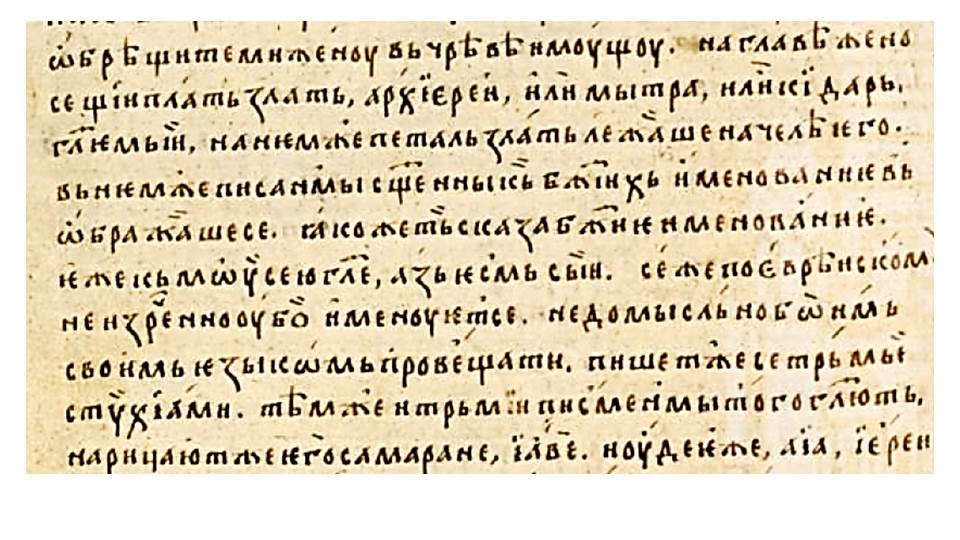 ѡ҆брѣщитеми женоу вь чрѣвѣ имоущоу. на главѣ жено
се щїи плать златъ, архїѥреи, или мытра, или кїдарь,
гл҃ѥмыи, на нѥмже петаль златъ лежаше на челѣ ѥго.
вь нѥмже писаными сщ҃енныкь бж҃їихь именованиѥ вь
ѡбражаше се. ꙗкоже ть сказа бж҃иѥ именованиѥ.
ѥже кь мѡѷсею гл҃ѥ, азь ѥсмь сыи. се же по єврѣиском
неизреч҇енно оубо именоуѥт се. недомысльно бо инѣмь
своимь ѥзыкѡмь провещати. пишет же се трьмь
стѷхїами. тѣмже и трьми писмены того гл҃ють,
нарицают же ѥго самаране, їаве. ноѷдеиже, аїа, їереи